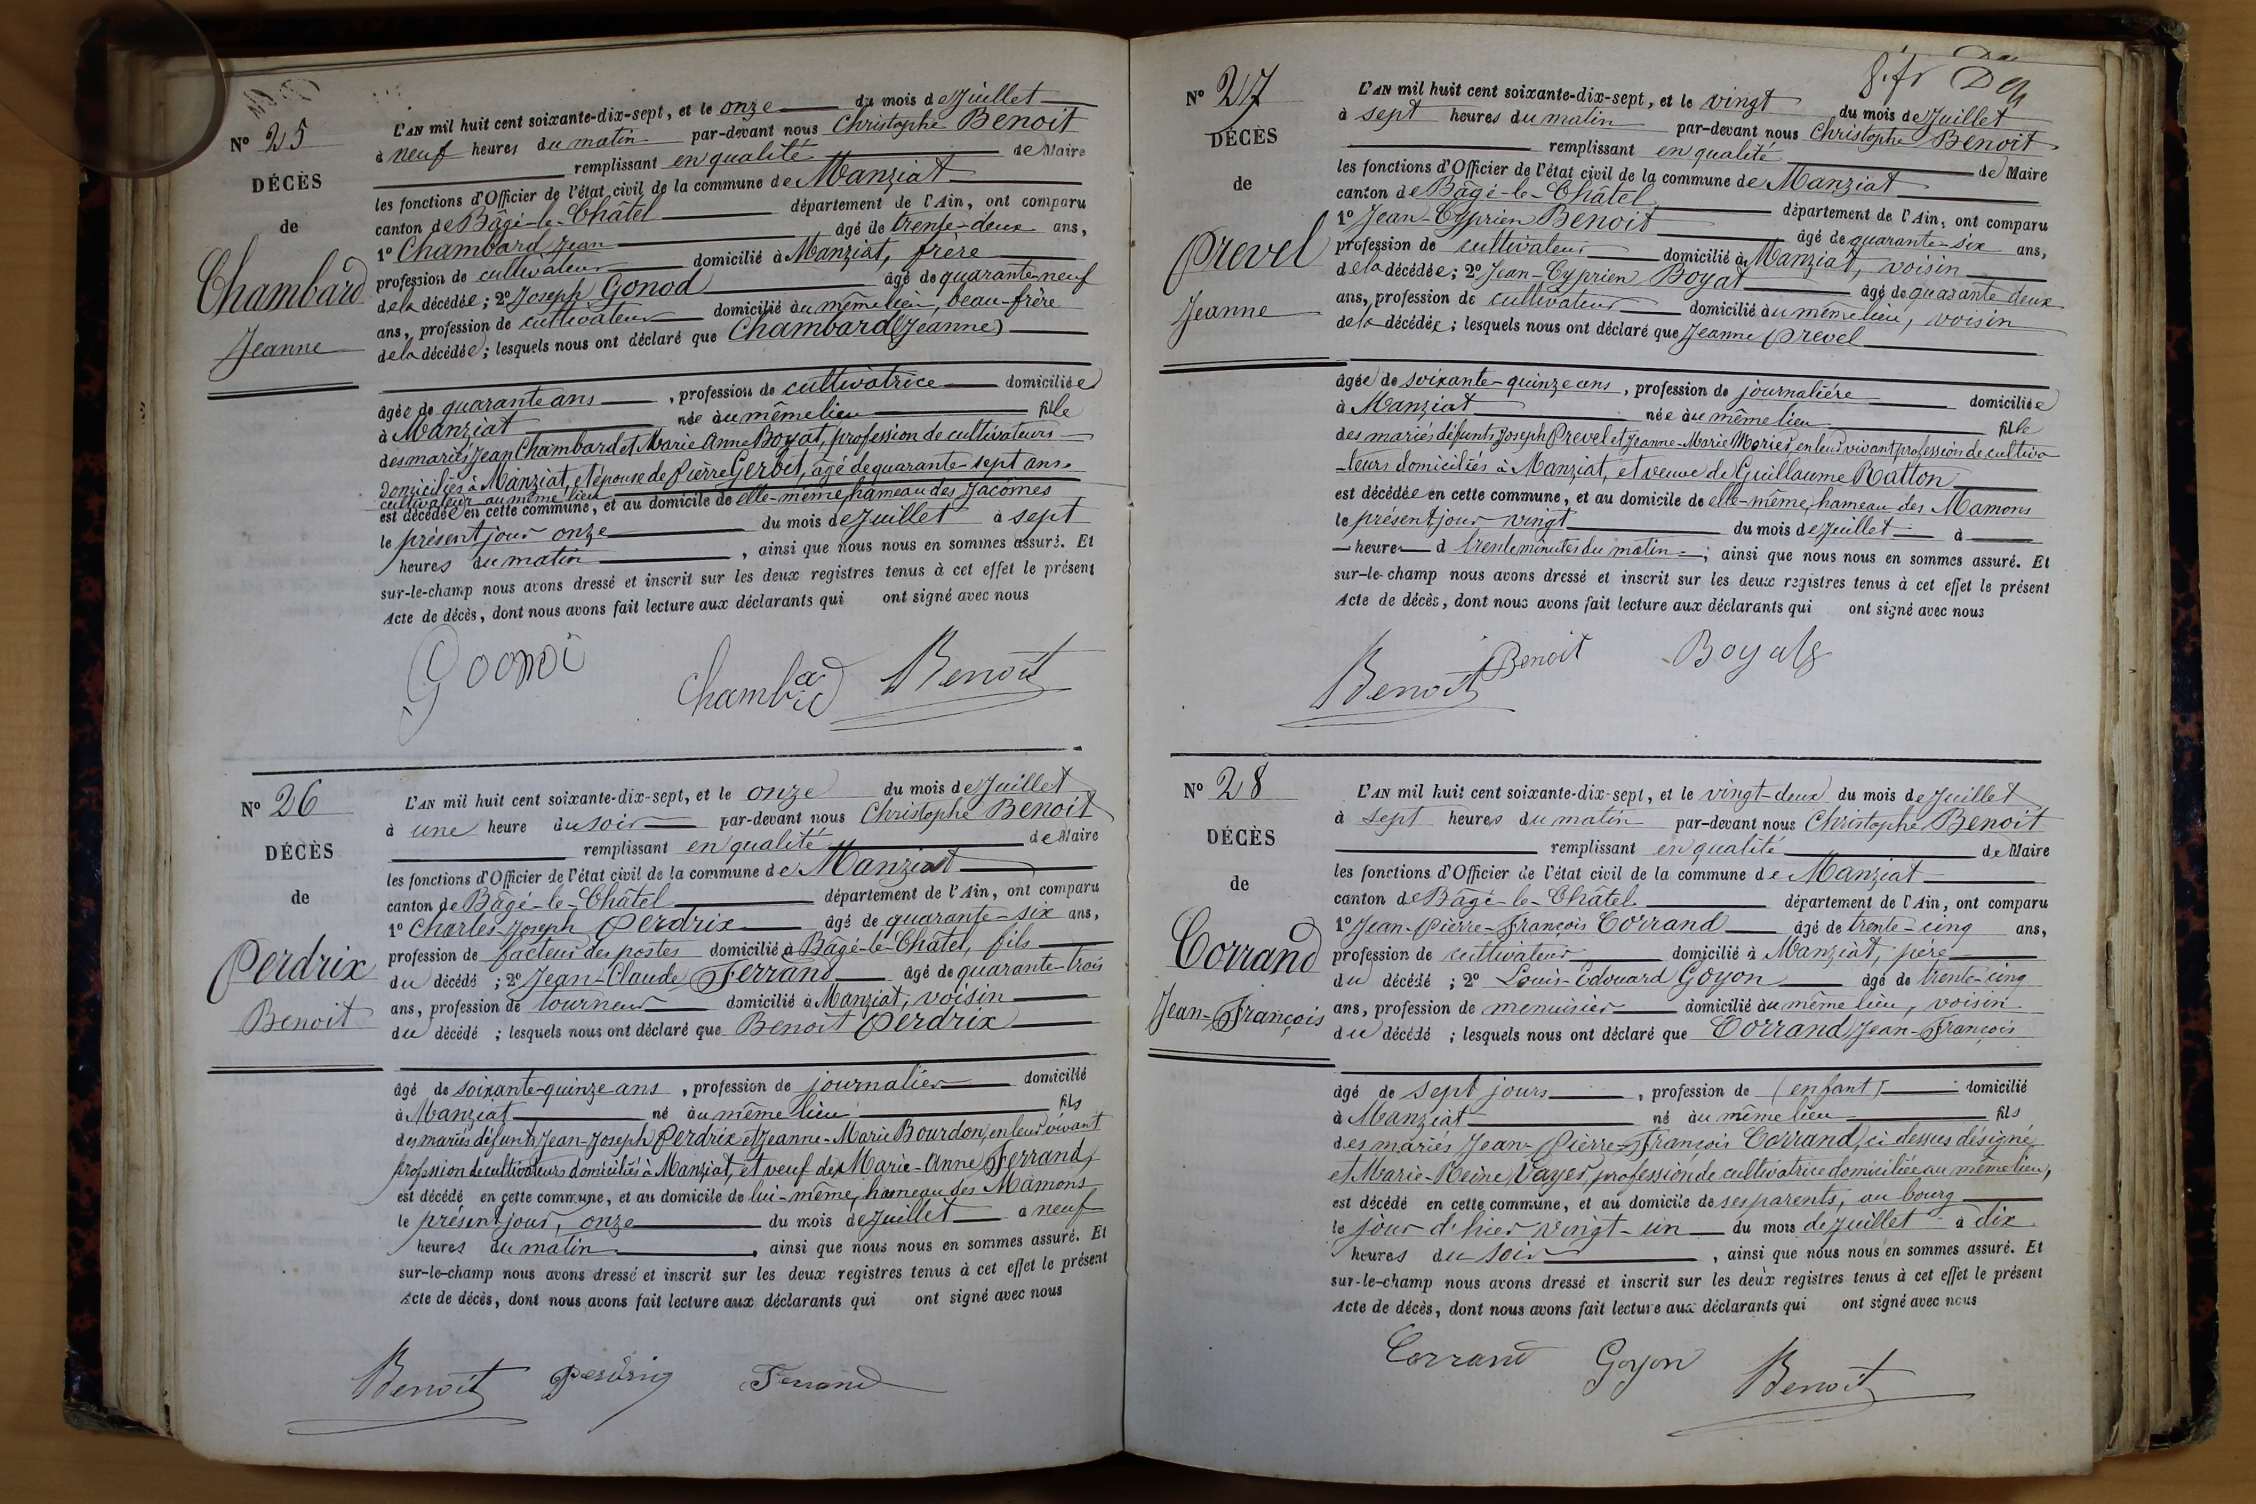 N° 25
DÉCÈS
de
Chambard
Jeanne
L'AN mil huit cent soixante-dix-sept, et le onze du mois de Juillet
à neuf heures du matin par-devant nous Christophe Benoit
remplissant en qualité de Maire
les fonctions d'Officier de l'état civil de la commune de Manziat
canton de Bâgé-le-Châtel département de l'Ain, ont comparu
1° Chambard Jean âgé de trente-deux ans,
profession de cultivateur domicilié à Manziat, frère
de la décédée ; 2° Joseph Gonod âgé de quarante-neuf
ans, profession de cultivateur domicilié au même lieu, beau-frère
de la décédée ; lesquels nous ont déclaré que Chambard (Jeanne)
âgée de quarante ans, profession de cultivatrice domiciliée
à Manziat née au même lieu fille
des mariés Jean Chambard et Marie Anne Boyat, profession de cultivateurs
domiciliés à Manziat, et épouse de Pierre Gerbet, âgé de quarante-sept ans.
cultivateur au même lieu
est décédée en cette commune, et au domicile de elle-même hameau des Jacômes
le présent jour onze du mois de Juillet à sept
heures du matin, ainsi que nous nous en sommes assuré. Et
sur-le-champ nous avons dressé et inscrit sur les deux registres tenus à cet effet le présent
Acte de décès, dont nous avons fait lecture aux déclarants qui ont signé avec nous
Chambard Benoit
N° 26
DÉCÈS
de
Perdrix
Benoit
L'AN mil huit cent soixante-dix-sept, et le onze du mois de Juillet
à une heure du soir par-devant nous Christophe Benoit
remplissant en qualité de Maire
les fonctions d'Officier de l'état civil de la commune de Manziat
canton de Bâgé-le-Châtel département de l'Ain, ont comparu
1° Charles-Joseph Perdrix âgé de quarante-six ans,
profession de facteur des postes domicilié à Bâgé-le-Châtel, fils
du décédé ; 2° Jean-Claude Ferrand âgé de quarante-trois
ans, profession de tourneur domicilié à Manziat, voisin
du décédé ; lesquels nous ont déclaré que Benoit Perdrix
âgé de soixante-quinze ans, profession de journalier domicilié
à Manziat né au même lieu fils
des mariés défunts Jean-Joseph Perdrix et Jeanne-Marie Bourdon, en leur vivant
profession de cultivateurs domiciliés à Manziat, et veuf de Marie-Anne Ferrand,
est décédé en cette commune, et au domicile de lui-même, hameau des Mamons
le présent jour, onze du mois de Juillet à neuf
heures du matin, ainsi que nous nous en sommes assuré. Et
sur-le-champ nous avons dressé et inscrit sur les deux registres tenus à cet effet le présent
Acte de décès, dont nous avons fait lecture aux déclarants qui ont signé avec nous
Benoit Perdrix Ferrand
N° 27
DÉCÈS
de
Prevel
Jeanne
L'AN mil huit cent soixante-dix-sept, et le vingt du mois de Juillet
à sept heures du matin par-devant nous Christophe Benoit
remplissant en qualité de Maire
les fonctions d'Officier de l'état civil de la commune de Manziat
canton de Bâgé-le-Châtel département de l'Ain, ont comparu
1° Jean-Cyprien Benoit âgé de quarante-six ans,
profession de cultivateur domicilié à Manziat, voisin
de la décédée ; 2° Jean-Cyprien Boyat âgé de quarante deux
ans, profession de cultivateur domicilié au même lieu, voisin
de la décédée ; lesquels nous ont déclaré que Jeanne Prevel
âgée de soixante-quinze ans, profession de journalière domiciliée
à Manziat née au même lieu fille
des mariés défunts Joseph Prevel et Jeanne-Marie en leur vivant profession de cultiva
-teurs domiciliés à Manziat, et veuve de Guillaume Ratton
est décédée en cette commune, et au domicile de elle-même, hameau des Mamons
le présent jour vingt du mois de Juillet à
heure à trente minutes du matin ; ainsi que nous nous en sommes assuré. Et
sur-le-champ nous avons dressé et inscrit sur les deux registres tenus à cet effet le présent
Acte de décès, dont nous avons fait lecture aux déclarants qui ont signé avec nous
Benoit Benoit
N° 28
DÉCÈS
de
Corrand
Jean-François
L'AN mil huit cent soixante-dix-sept, et le vingt-deux du mois de Juillet
à sept heures du matin par-devant nous Christophe Benoit
remplissant en qualité de Maire
les fonctions d'Officier de l'état civil de la commune de Manziat
canton de Bâgé-le-Châtel département de l'Ain, ont comparu
1° Jean-Pierre-François Corrand âgé de trente-cinq ans,
profession de cultivateur domicilié à Manziat, père
du décédé ; 2° Louis-Edouard Goyon âgé de trente-cinq
ans, profession de menuisier domicilié au même lieu, voisin
du décédé ; lesquels nous ont déclaré que Corrand Jean-François
âgé de sept jours, profession de (enfant) domicilié
à Manziat né au même lieu fils
des mariés Jean-Pierre-François Corrand, ci dessus désigné
et Marie-Reine Vayer, profession de cultivatrice domiciliée au même lieu,
est décédé en cette commune, et au domicile de ses parents, au bourg
le jour d'hier vingt-un du mois de Juillet à dix
heures du soir, ainsi que nous nous en sommes assuré. Et
sur-le-champ nous avons dressé et inscrit sur les deux registres tenus à cet effet le présent
Acte de décès, dont nous avons fait lecture aux déclarants qui ont signé avec nous
Corrand Goyon Benoit